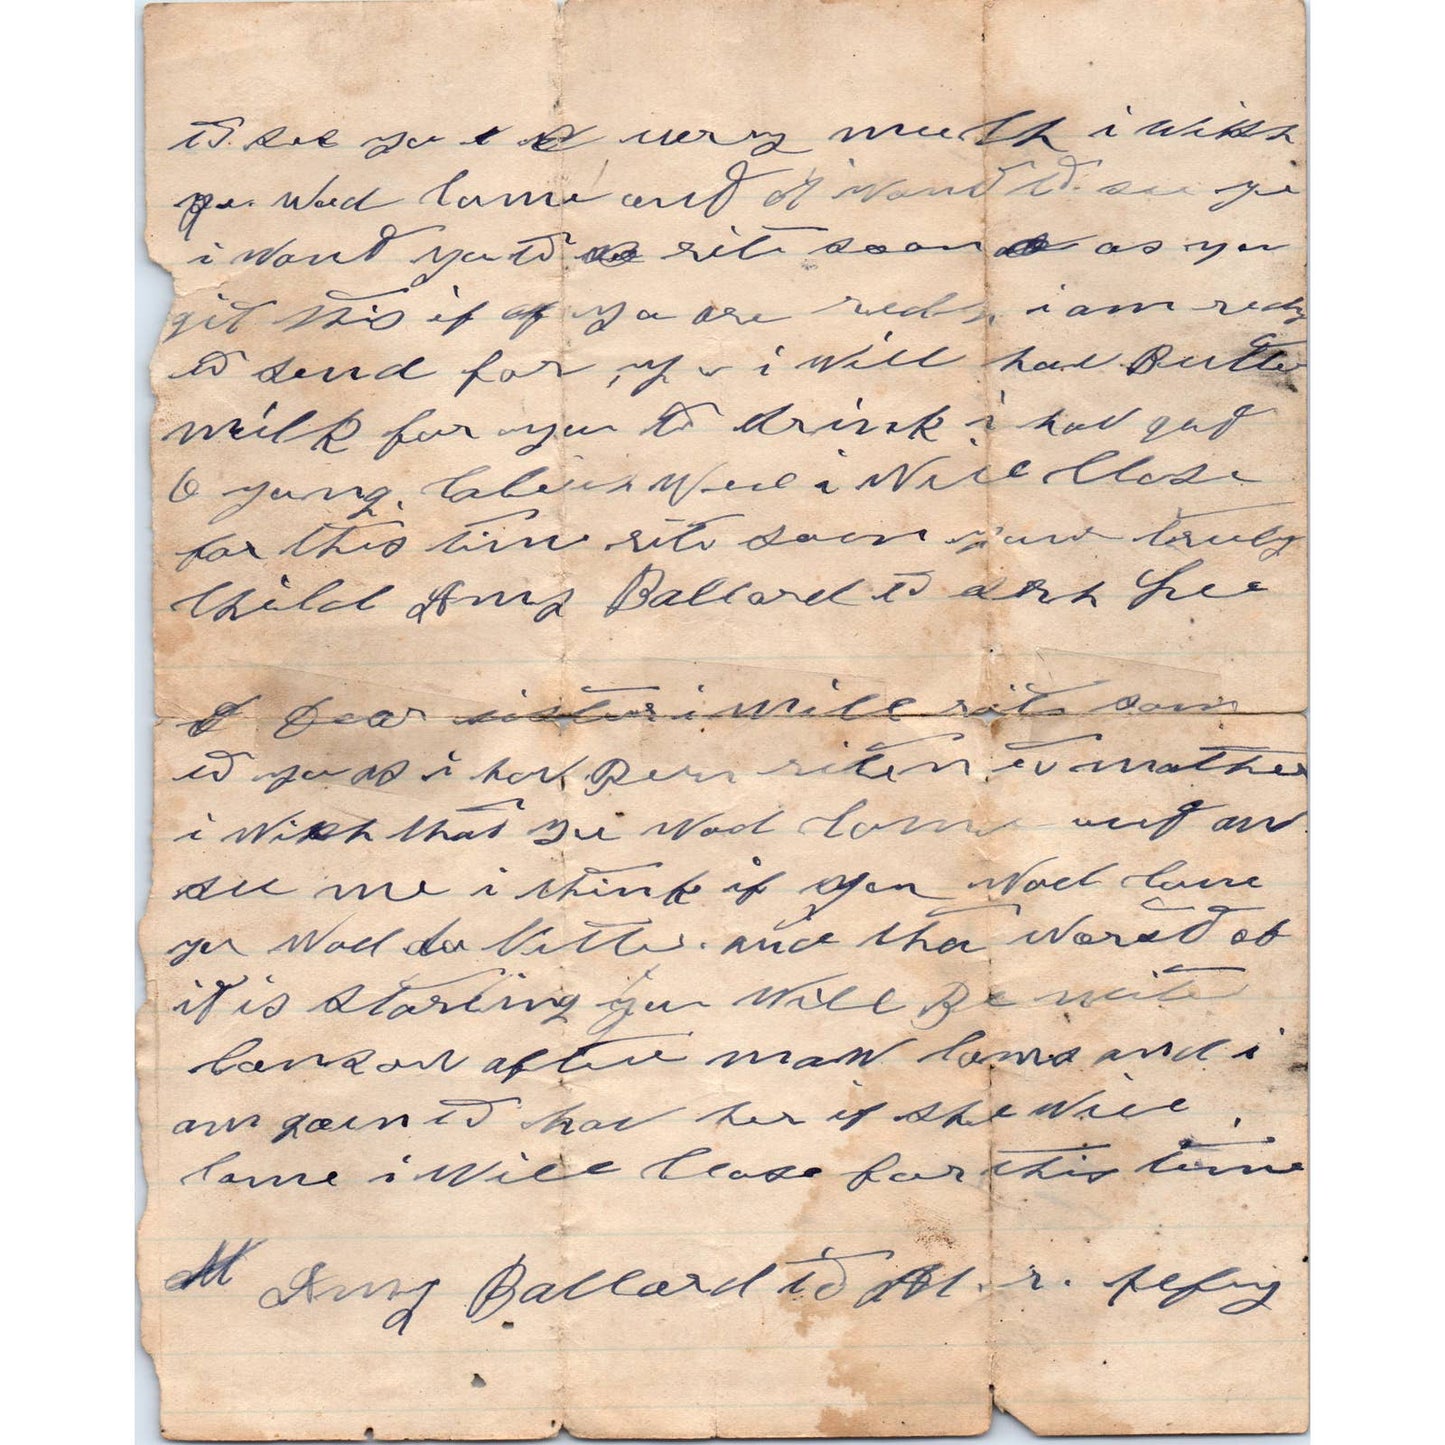 to see you very much i wish
you wod come out i wont to see you
i wont you to rite soon as you
git this if you are redy i am redy
to send for you i will hav Butter
milk for you to drink i hav got
6 young i will Close
for this time rite soon your truly
Child Amy Ballard to Lee
Dear sister i will rite some
to you as i hav Been riten to mother
i wish that you wod come out an
see me i think if you wod come
you wod do better and the worst of
it is starting you will Be
after maw coms and i
am goen to hav her if she will
come i will Close for this time
Amy Ballard to